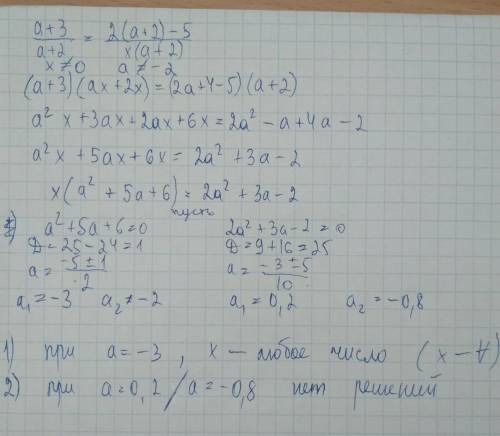 a+3/a+2 = 2(a+2)-5/x(a+2)
x≠0 a≠-2
(a+3)(ax+2x)=(2a+4-5)(a+2)
a²x+3ax+2ax+6x=2a²-a+4a-2
a²x+5ax+6x=2a²+3a-2
x(a²+5a+6)=2a²+3a-2
пусть
a²+5a+6=0 2a²+3a-2=0
D=25-24=1 D=9+16=25
a=-5±1/2 a=-3±5/10
a₁=-3 a₂≠-2 a₁=0,2 a₂=-0,8
1) при a=-3, x - любое число (x-∀)
2) при a=0,2/a=-0,8 нет решений